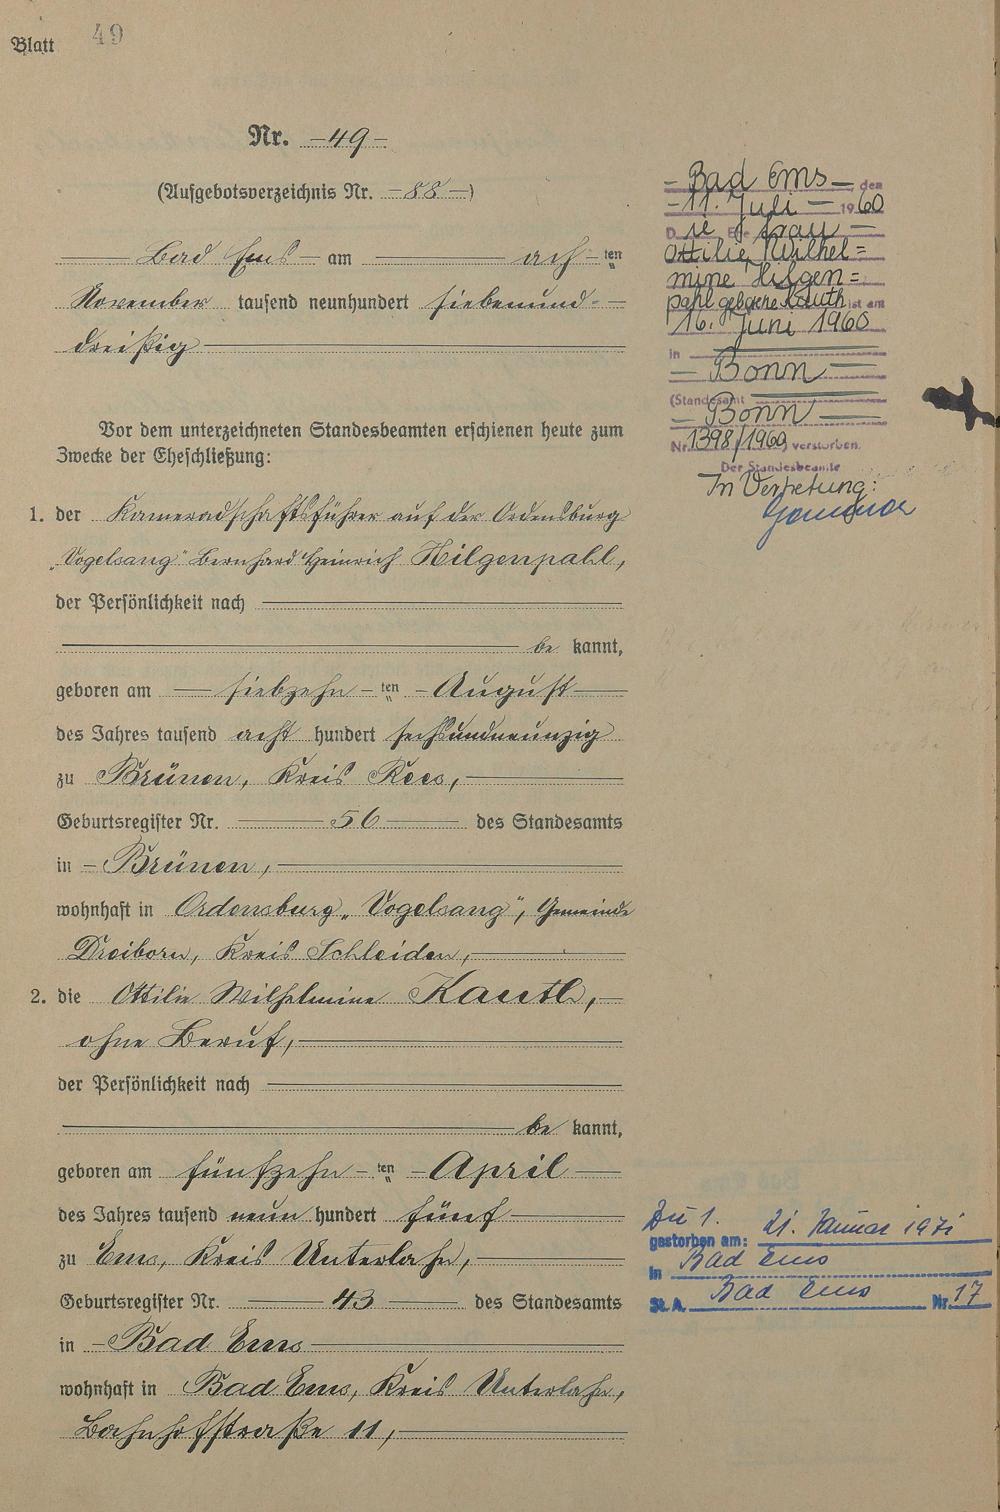 Blatt 49
Nr. -49-
(Aufgebotsverzeichnis Nr. -88-)
Bad Ems am ach ten
November tausend neunhundert siebenund-
dreißig
Vor dem unterzeichneten Standesbeamten erschienen heute zum
Zwecke der Eheschließung:
1. der Kameradschaftsführer auf der Ordensburg
„Vogelsang" Bernhard Heinrich Hilgenpahl,
der Persönlichkeit nach
be kannt,
geboren am siebzehn ten August
des Jahres tausend acht hundert sechsundneunzig
zu Brünen, Kreis Rees,
Geburtsregister Nr. 56 des Standesamts
in Brünen,
wohnhaft in Ordensburg „Vogelsang", Gemeinde
Dreiborn, Kreis Schleiden,
2. die Ottilie Wilhelmine Kauth,
ohne Beruf,
der Persönlichkeit nach
be kannt,
geboren am fünfzehn ten April
des Jahres tausend neun hundert fünf
zu Ems, Kreis Unterlahn,
Geburtsregister Nr. 43 des Standesamts
in Bad Ems
wohnhaft in Bad Ems, Kreis Unterlahn,
Bahnhofstraße 11,
Bad Ems, den
11. Juli 1960
Die Ehefrau
Ottilie Wilhel=
mine Hilgen=
pahl geborene Kauth ist am
16. Juni 1960
in
Bonn
(Standesamt
Bonn
Nr. 1398/1960) verstorben.
Der Standesbeamte
In Vertretung:
Zu 1.
gestorben am: 21. Januar 1971
in Bad Ems
St. A. Bad Ems Nr. 17